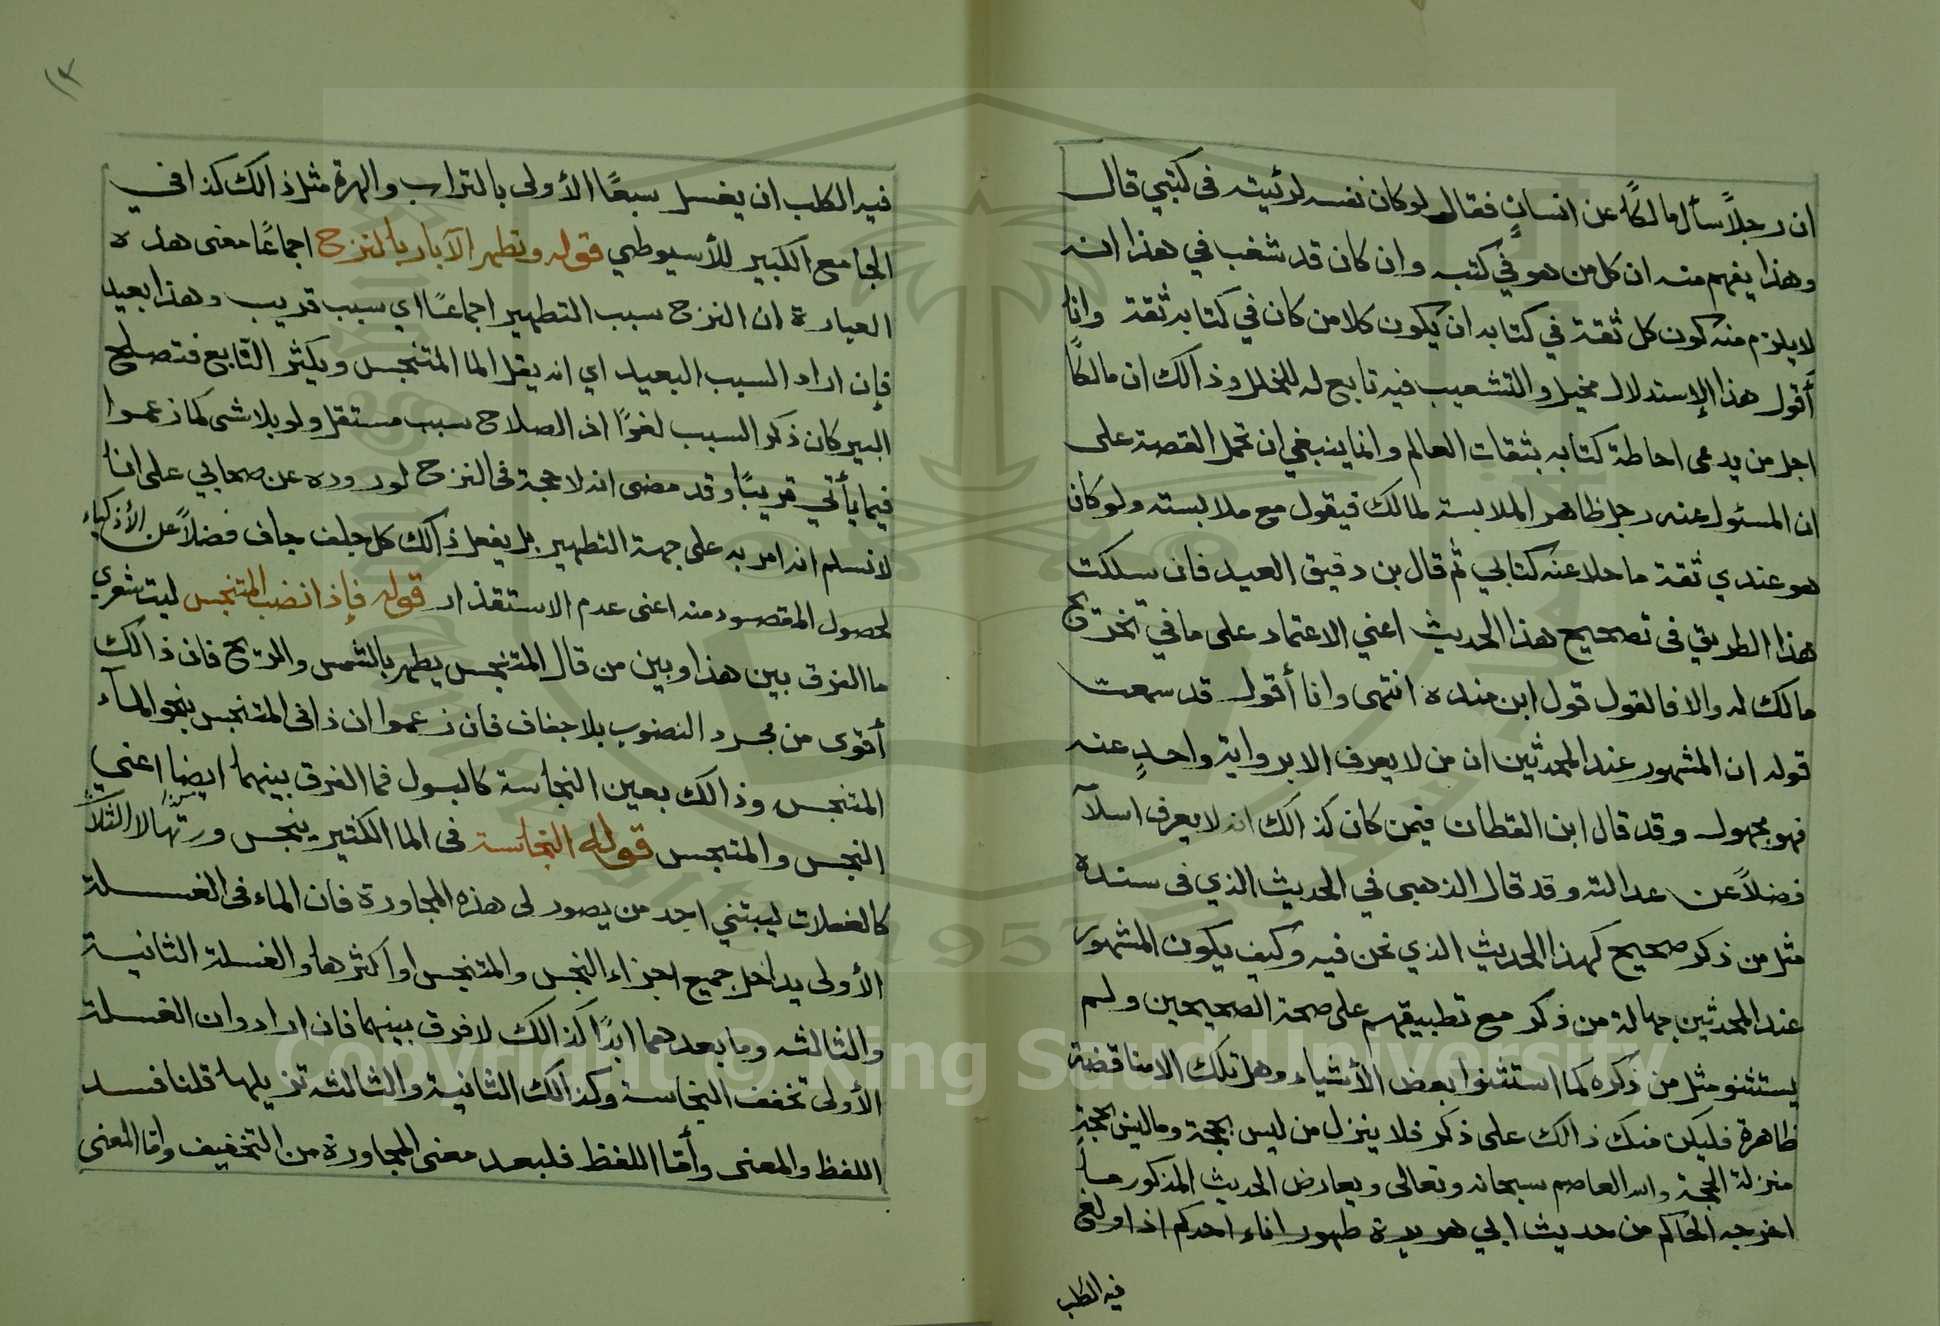 ان رجلاً سأل مالكاً عن انسانٍ فقال لو كان نفسه لرئيته في كتبي قال
وهذا يفهم منه ان كل من هو في كتبه وان كان قد شغب في هذا انه
لا يلزم منه كون كل ثقة في كتابه ان يكون كلا من كان في كتابه ثقة وانا
أقول هذا الإستدلال مخيل والتشعيب فيه تابع له للخلل وذالك ان مالكاً
اجل من يدعى احاطة كتابه بثقات العالم وانما ينبغي ان تحمل القصة على
ان المسئول عنه رجل ظاهر الملابسة لمالك فيقول مع ملابسته ولو كان
هو عندي ثقة ما خلا عنه كتابي ثم قال بن دقيق العيد فان سلكت
هذا الطريق في تصحيح هذا الحديث اعني الاعتماد على ما في تخريج
مالك له والا فالقول قول ابن منده انتهى وانا أقول قد سمعت
قوله ان المشهور عند المحدثين ان من لا يعرف الا برواية واحدٍ عنه
فهو مجهول وقد قال ابن القطان فيمن كان كذالك انه لا يعرف اسلآ
فضلاً عن عدالته وقد قال الذهبي في الحديث الذي في سنده
مثل من ذكر صحيح كهذا الحديث الذي نحن فيه وكيف يكون المشهور
عند المحدثين جهالة من ذكر مع تطبيقهم على صحة الصحيحين ولم
يستثنو مثل من ذكره كما استثنوا بعض الأشياء وهل تلك الا مناقضة
ظاهرة فليكن منك ذالك على ذكر فلا ينزل من ليس بحجة وما ليس بحجة
منزلة الحجة والله العاصم سبحانه وتعالى ويعارض الحديث المذكور ما
اخرجه الحاكم من حديث ابي هريرة طهور اناء احدكم اذا ولغ
فيه الكلب
١٣
فيه الكلب ان يغسل سبعًا الأولى بالتراب والهرة مثل ذالك كذا في
الجامع الكبير للأسيوطي قوله وتطهر الآبار بالنزح اجماعًا معنى هذه
العبارة ان النزح سبب التطهير اجماعًا اي سبب قريب وهذا بعيد
فإن اراد السبب البعيد اي انه يقل الما المتنجس ويكثر التابع فتصلح
البير كان ذكر السبب لغوًا اذ الصلاح سبب مستقل ولو بلا شى كما زعموا
فيما يأتي قريبًا وقد مضى انه لا حجة في النزح لوروده عن صحابي على انا
لا نسلم انه امر به على جهة التطهير بل يفعل ذالك كل جلف جاف فضلاً عن الأذكياء
لحصول المقصود منه اعنى عدم الاستقذار قوله فإذا نضب المتنجس ليت شعري
ما الفرق بين هذا وبين من قال المتنجس يطهر بالشمس والريح فان ذالك
أقوى من مجرد النضوب بلا جفاف فان زعموا ان ذا في المتنجس بنحو المآء
المتنجس وذالك بعين النجاسة كالبول فما الفرق بينهما ايضًا اعني
النجس والمتنجس قوله النجاسة في الما الكثير ينجس ورتها لا الثلاثا
كالغسلات ليبتني احد من يصور لى هذه المجاورة فان الماء في الغسلة
الأولى يداخل جميع اجزاء النجس والمتنجس او أكثرها والغسلة الثانية
والثالثه وما بعدهما ابدًا كذالك لا فرق بينهما فان ارادو ان الغسلة
الأولى تخفف النجاسة وكذالك الثانية والثالثه تزيلها قلنا فسد
اللفظ والمعنى وأمّا اللفظ فلبعد معنى المجاورة من التخفيف وامّا المعنى
Copyright © King Saud University
1957